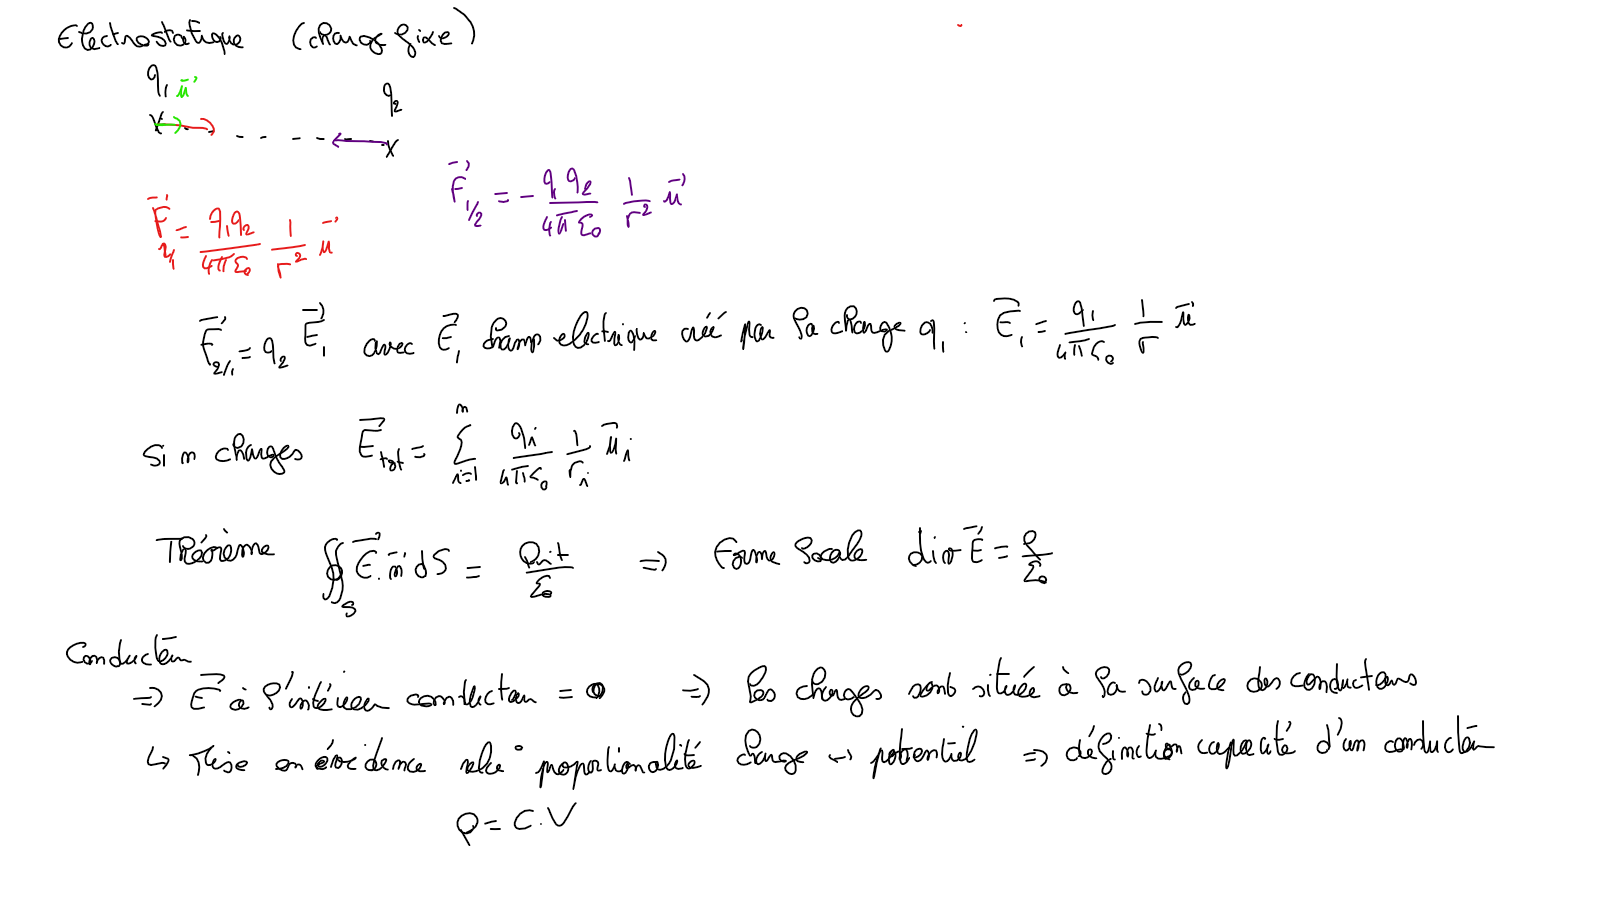 Electrostatique (charge fixe)
q₁ u⃗
q₂
F⃗₁/₂ = - q₁q₂/4πε₀ 1/r² u⃗
F⃗₂/₁ = q₁q₂/4πε₀ 1/r² u⃗
F⃗₂/₁ = q₂ E⃗₁ avec E⃗₁ champ electrique créé par la charge q₁ : E⃗₁ = q₁/4πε₀ 1/r u⃗
Si n charges E⃗tot = Σ i=1 n qi/4πε₀ 1/ri u⃗i
Théorème ∯S E⃗.n⃗ dS = Qint/ε₀ => Forme locale div E⃗ = ρ/ε₀
Conducteur
=> E⃗ à l'intérieur conducteur = 0 => les charges sont située à la surface des conducteurs
↳ Mise en évidence relat° proportionalité charge ↔ potentiel => définition capacité d'un conducteur
Q = C.V